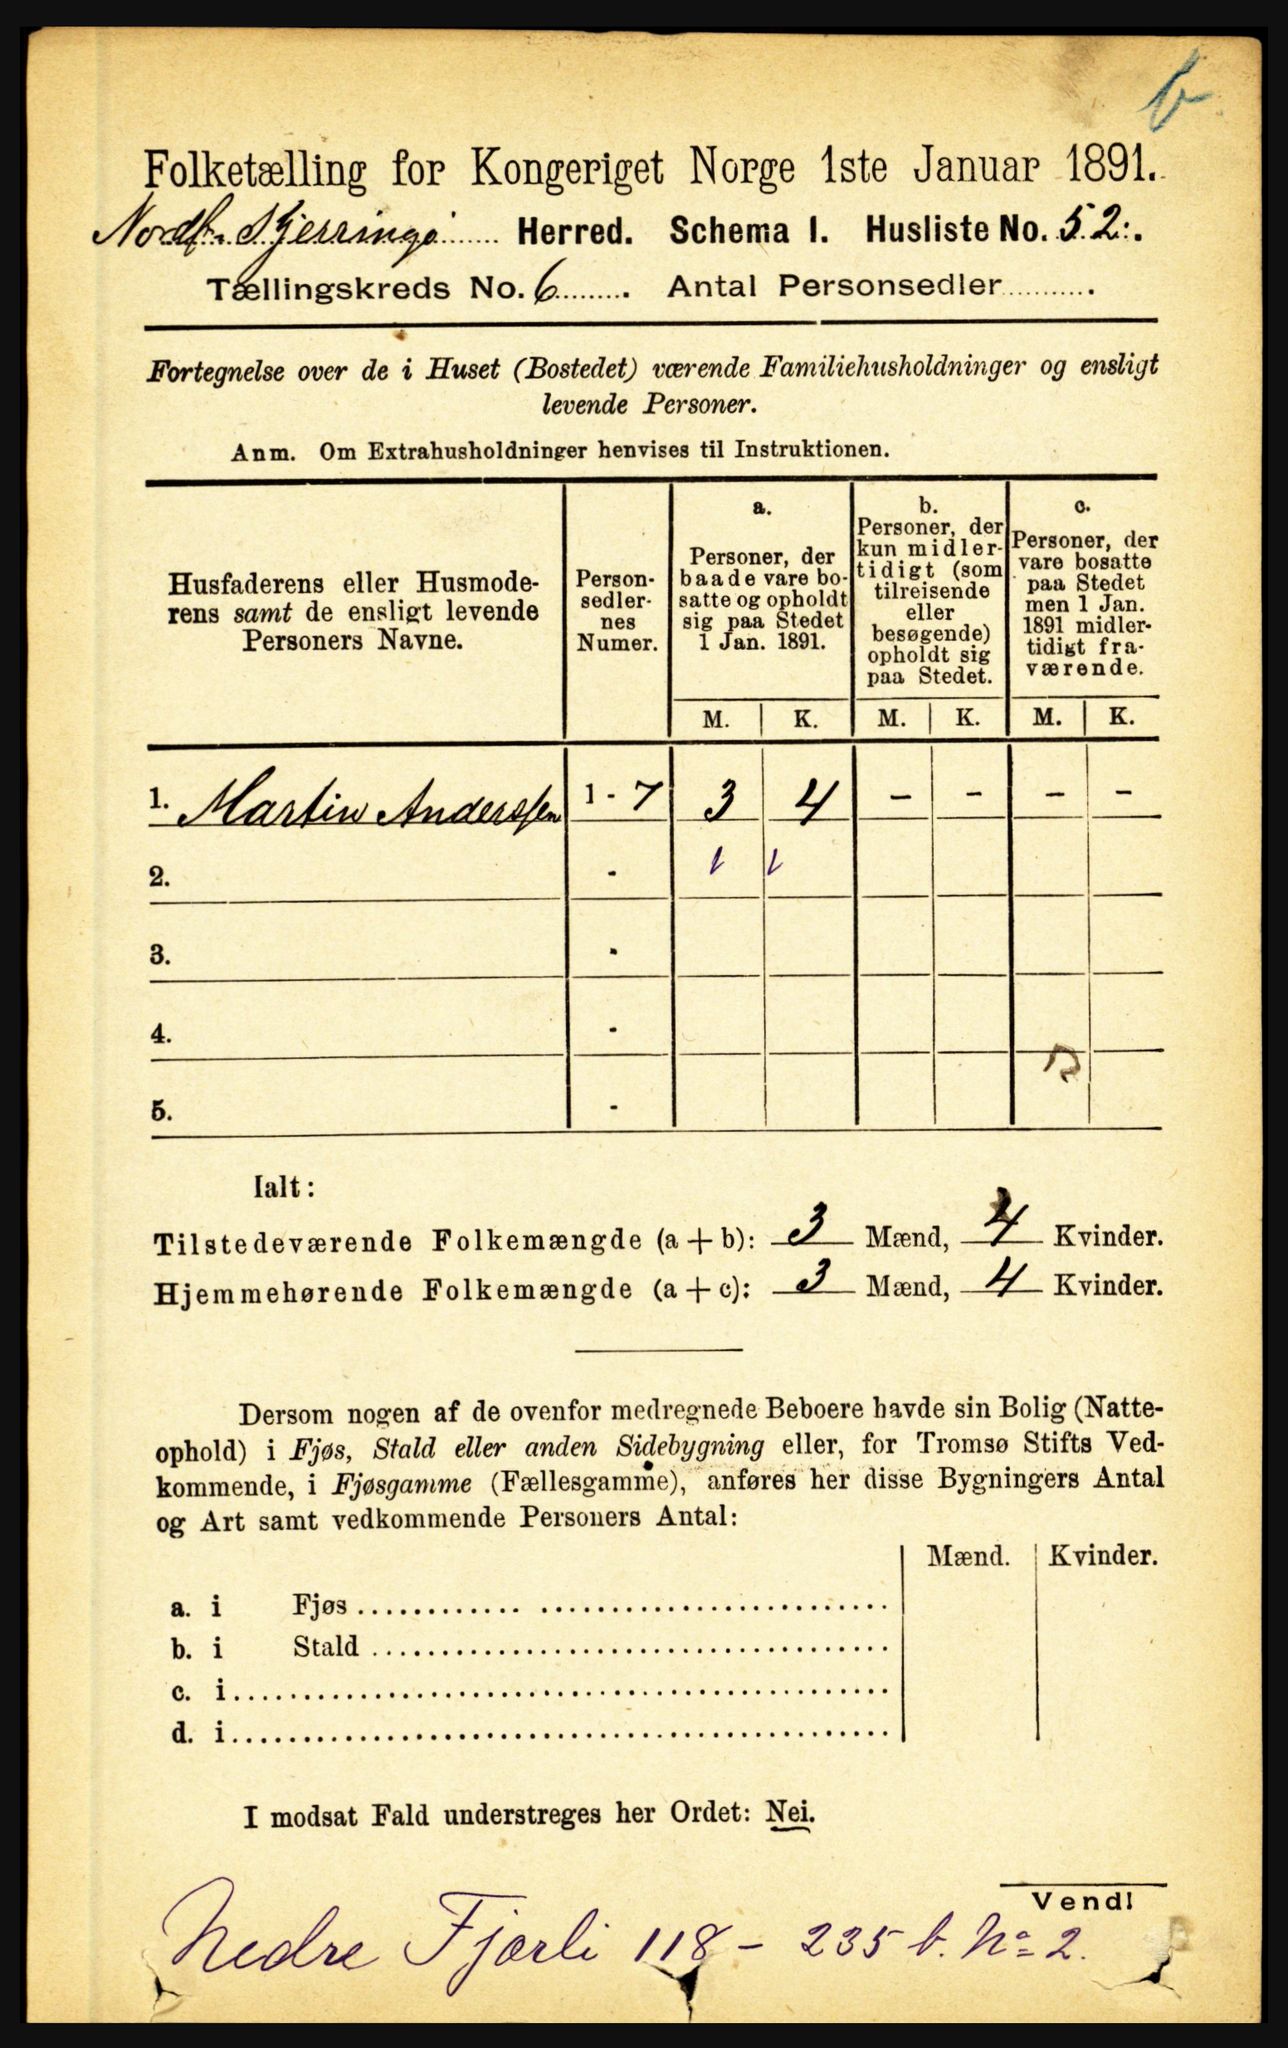 b
Folketælling for Kongeriget Norge 1ste Januar 1891.
Nordf. Kjerringø Herred. Schema I. Husliste No. 52.
Tællingskreds No. 6. Antal Personsedler .
Fortegnelse over de i Huset (Bostedet) værende Familiehusholdninger og ensligt
levende Personer.
Anm. Om Extrahusholdninger henvises til Instruktionen.
Husfaderens eller Husmode-
rens samt de ensligt levende
Personers Navne.
Person-
sedler-
nes
Numer.
a.
Personer, der
baade vare bo-
satte og opholdt
sig paa Stedet
1 Jan. 1891.
b.
Personer, der
kun midler-
tidigt (som
tilreisende
eller
besøgende)
opholdt sig
paa Stedet.
c.
Personer, der
vare bosatte
paa Stedet
men 1 Jan.
1891 midler-
tidigt fra-
værende.
M. K. M. K. M. K.
1. Martin Anderssen 1 - 7 3 4 - - - -
2. -
3. -
4. -
5. -
Ialt:
Tilstedeværende Folkemængde (a + b): 3 Mænd, 4 Kvinder.
Hjemmehørende Folkemængde (a + c): 3 Mænd, 4 Kvinder.
Dersom nogen af de ovenfor medregnede Beboere havde sin Bolig (Natte-
ophold) i Fjøs, Stald eller anden Sidebygning eller, for Tromsø Stifts Ved-
kommende, i Fjøsgamme (Fællesgamme), anføres her disse Bygningers Antal
og Art samt vedkommende Personers Antal:
Mænd. Kvinder.
a. i Fjøs
b. i Stald
c. i
d. i
I modsat Fald understreges her Ordet: Nei.
Vend!
Nedre Fjærli 118 - 235 b. No 2.